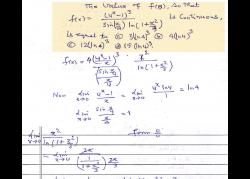 The value of f(0), so that
f(x) = (4ˣ-1)³ / sin(x/4) ln(1+x²/3) is continuous,
is equal to ① 3(ln4)³ ② 4(ln4)³
③ 12(ln4)³ ④ 15(ln4)³
f(x) = (4ˣ-1 / x)³ / (sin x/4 / x) · x² / ln(1+x²/3)
Now lim x→0 4ˣ-1 / x = lim x→0 4ˣ ln4 / 1 = ln4
lim x→0 sin x/4 / x/4 = 1
lim x→0 x² / ln(1+x²/3) form 0/0
= lim x→0 2x / (1 / 1+x²/3) 2x/3